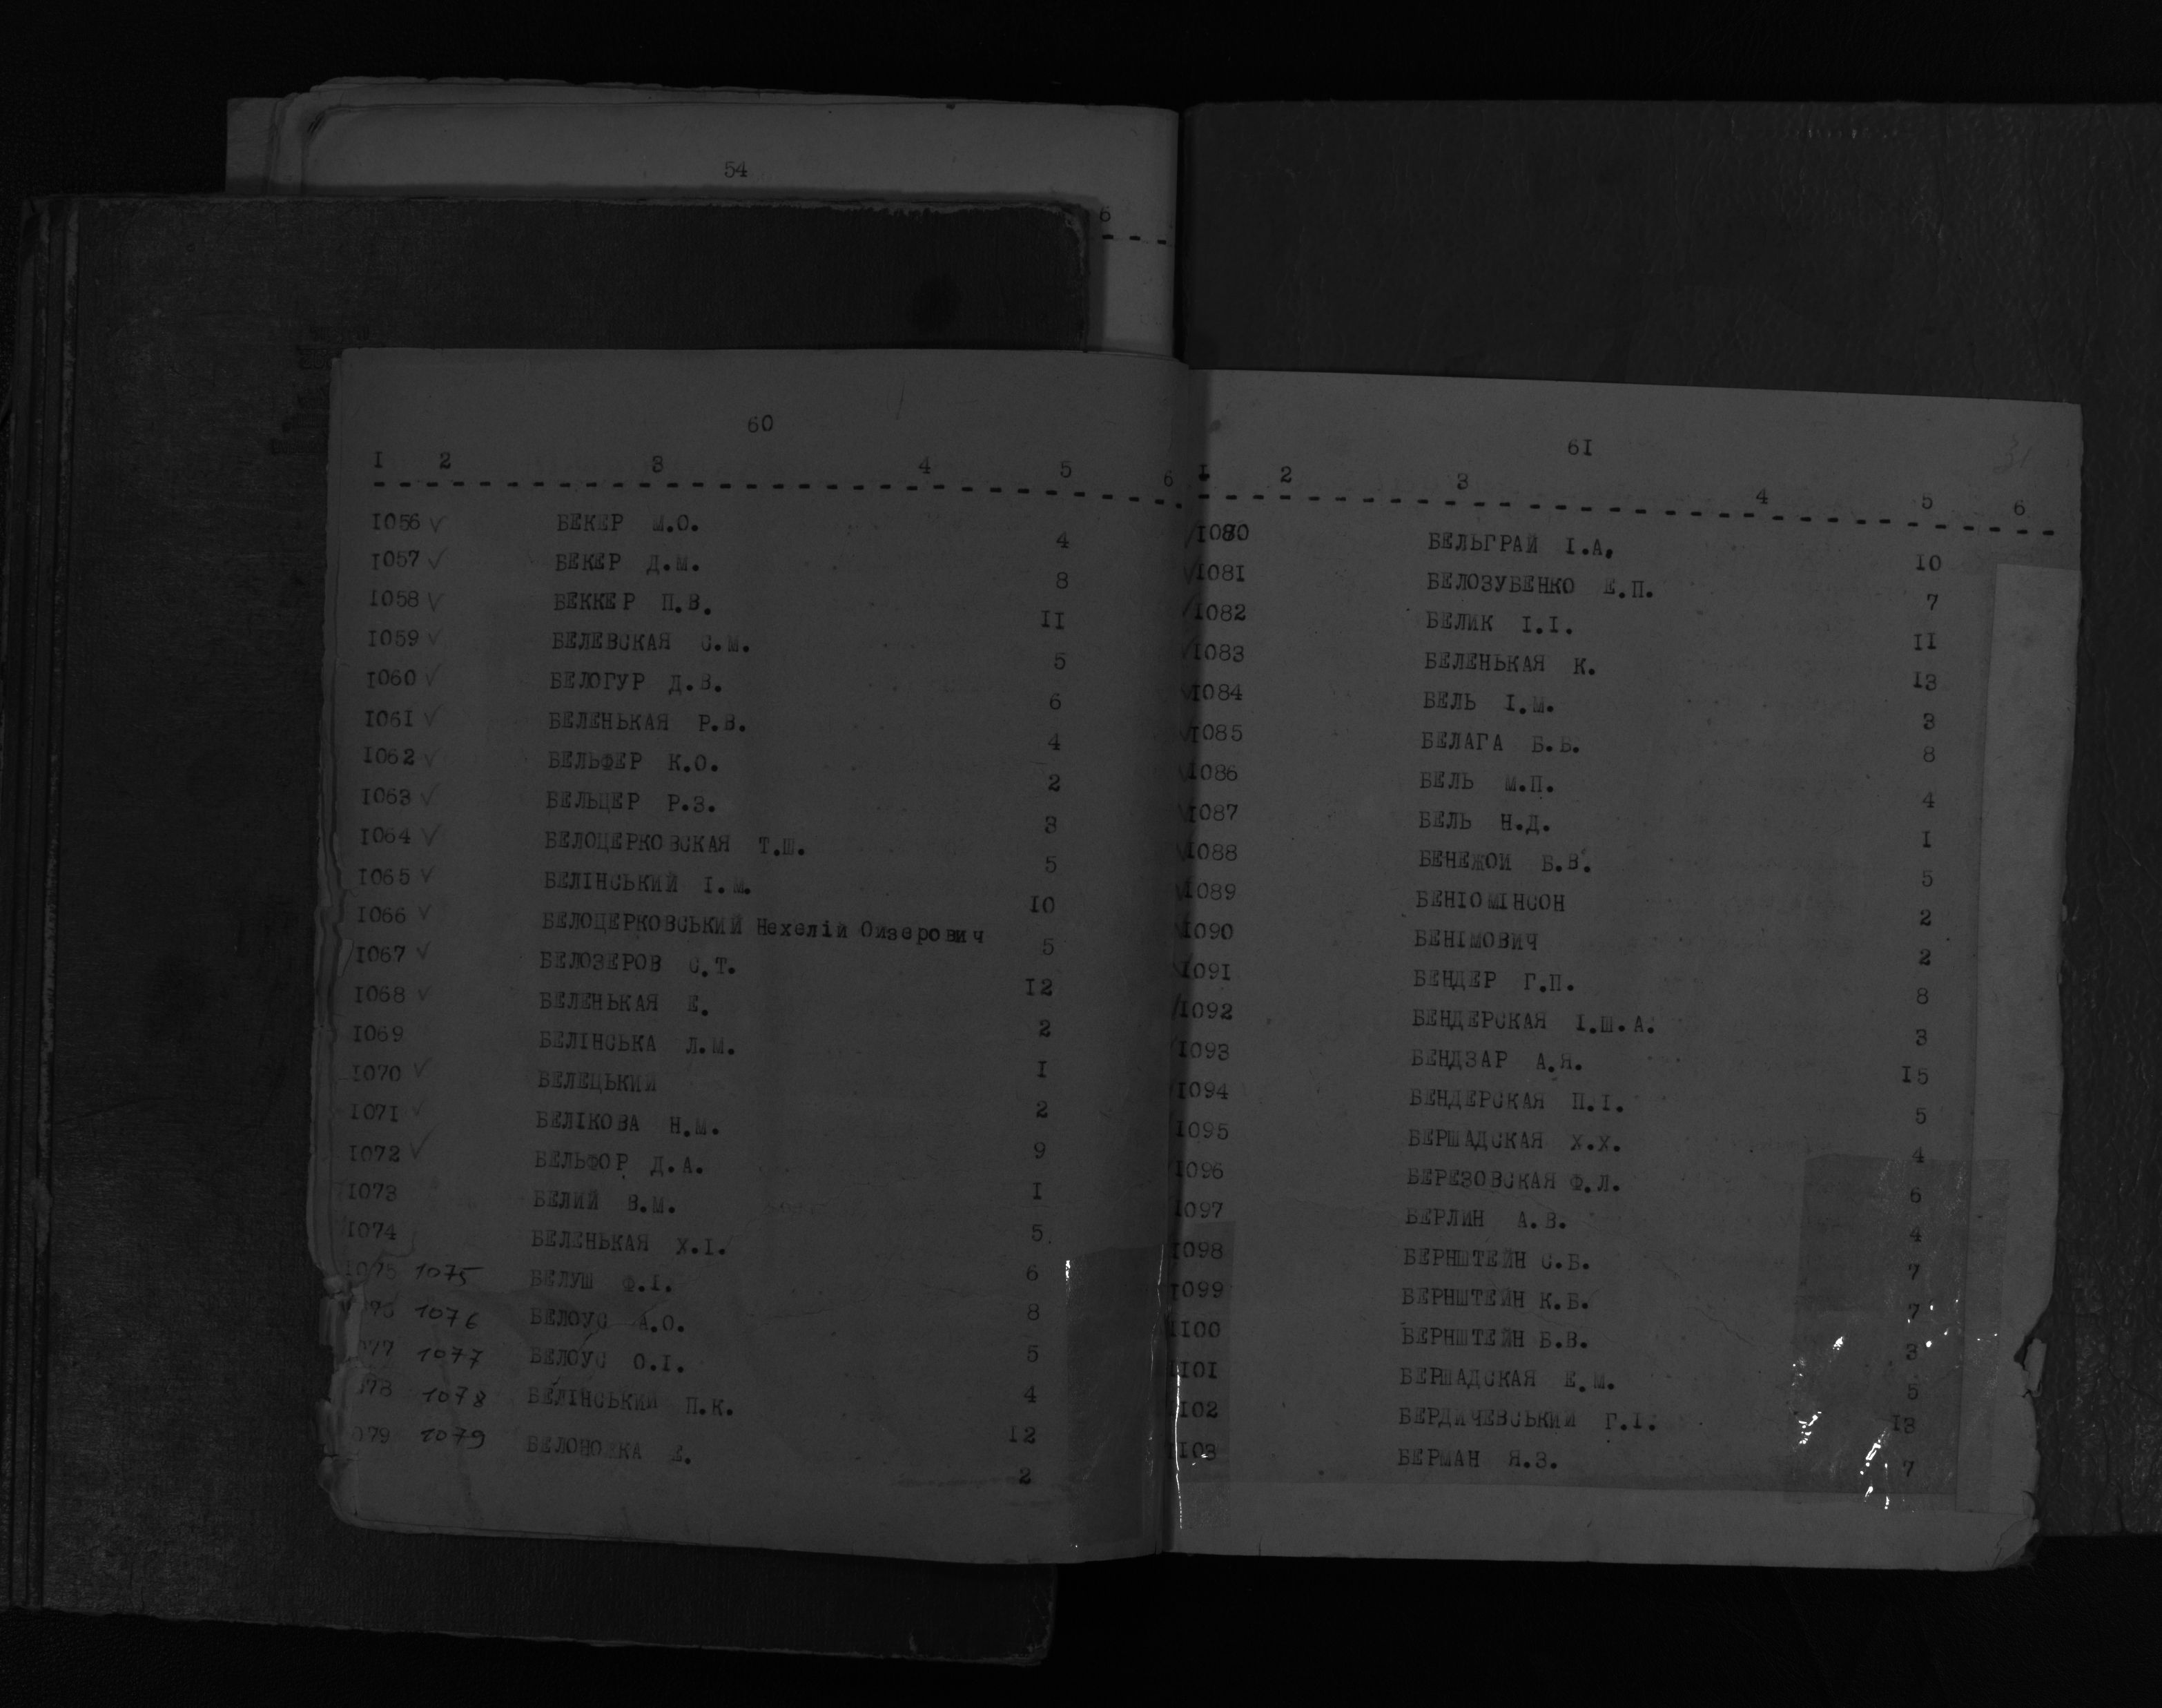 54
6
60
I 2 3 4 5 6
I056 ✓ БЕКЕР М.О. 4
I057 ✓ БЕКЕР Д.М. 8
I058 ✓ БЕККЕР П.В. II
I059 ✓ БЕЛЕВСКАЯ С.М. 5
I060 ✓ БЕЛОГУР Д.В. 6
I06I ✓ БЕЛЕНЬКАЯ Р.В. 4
I062 ✓ БЕЛЬФЕР К.О. 2
I063 ✓ БЕЛЬЦЕР Р.З. 3
I064 ✓ БЕЛОЦЕРКОВСКАЯ Т.Ш. 5
I065 ✓ БЕЛІНСЬКИЙ І.М. IO
I066 ✓ БЕЛОЦЕРКОВСЬКИЙ Нехелій Ойзерович 5
I067 ✓ БЕЛОЗЕРОВ С.Т. I2
I068 ✓ БЕЛЕНЬКАЯ Е. 2
I069 БЕЛІНСЬКА Л.М. I
I070 ✓ БЕЛЕЦЬКИЙ 2
I07I ✓ БЕЛІКОВА Н.М. 9
I072 ✓ БЕЛЬФОР Д.А. I
I073 БЕЛИЙ В.М. 5
I074 БЕЛЕНЬКАЯ Х.І. 6
I075 1075 БЕЛУШ Ф.І. 8
076 1076 БЕЛОУС А.О. 5
077 1077 БЕЛОУС О.І. 4
078 1078 БЕЛІНСЬКИЙ П.К. I2
079 1079 БЕЛОНОЖКА Е. 2
6I
31
I 2 3 4 5 6
I080 БЕЛЬГРАЙ І.А. IO
I08I БЕЛОЗУБЕНКО Е.П. 7
I082 БЕЛИК І.І. II
I083 БЕЛЕНЬКАЯ К. I3
I084 БЕЛЬ І.М. 3
I085 БЕЛАГА Б.Б. 8
I086 БЕЛЬ М.П. 4
I087 БЕЛЬ Н.Д. I
I088 БЕНЕЖОЙ Б.В. 5
I089 БЕНІОМІНСОН 2
I090 БЕНІМОВИЧ 2
I09I БЕНДЕР Г.П. 8
I092 БЕНДЕРСКАЯ І.Ш.А. 3
I093 БЕНДЗАР А.Я. I5
I094 БЕНДЕРСКАЯ П.І. 5
I095 БЕРШАДСКАЯ Х.Х. 4
I096 БЕРЕЗОВСКАЯ Ф.Л. 6
I097 БЕРЛИН А.В. 4
I098 БЕРНШТЕЙН С.Б. 7
I099 БЕРНШТЕЙН К.Б. 7
II00 БЕРНШТЕЙН Б.В. 3
II0I БЕРШАДСКАЯ Е.М. 5
II02 БЕРДИЧЕВСЬКИЙ Г.І. I3
II03 БЕРМАН Я.З. 7